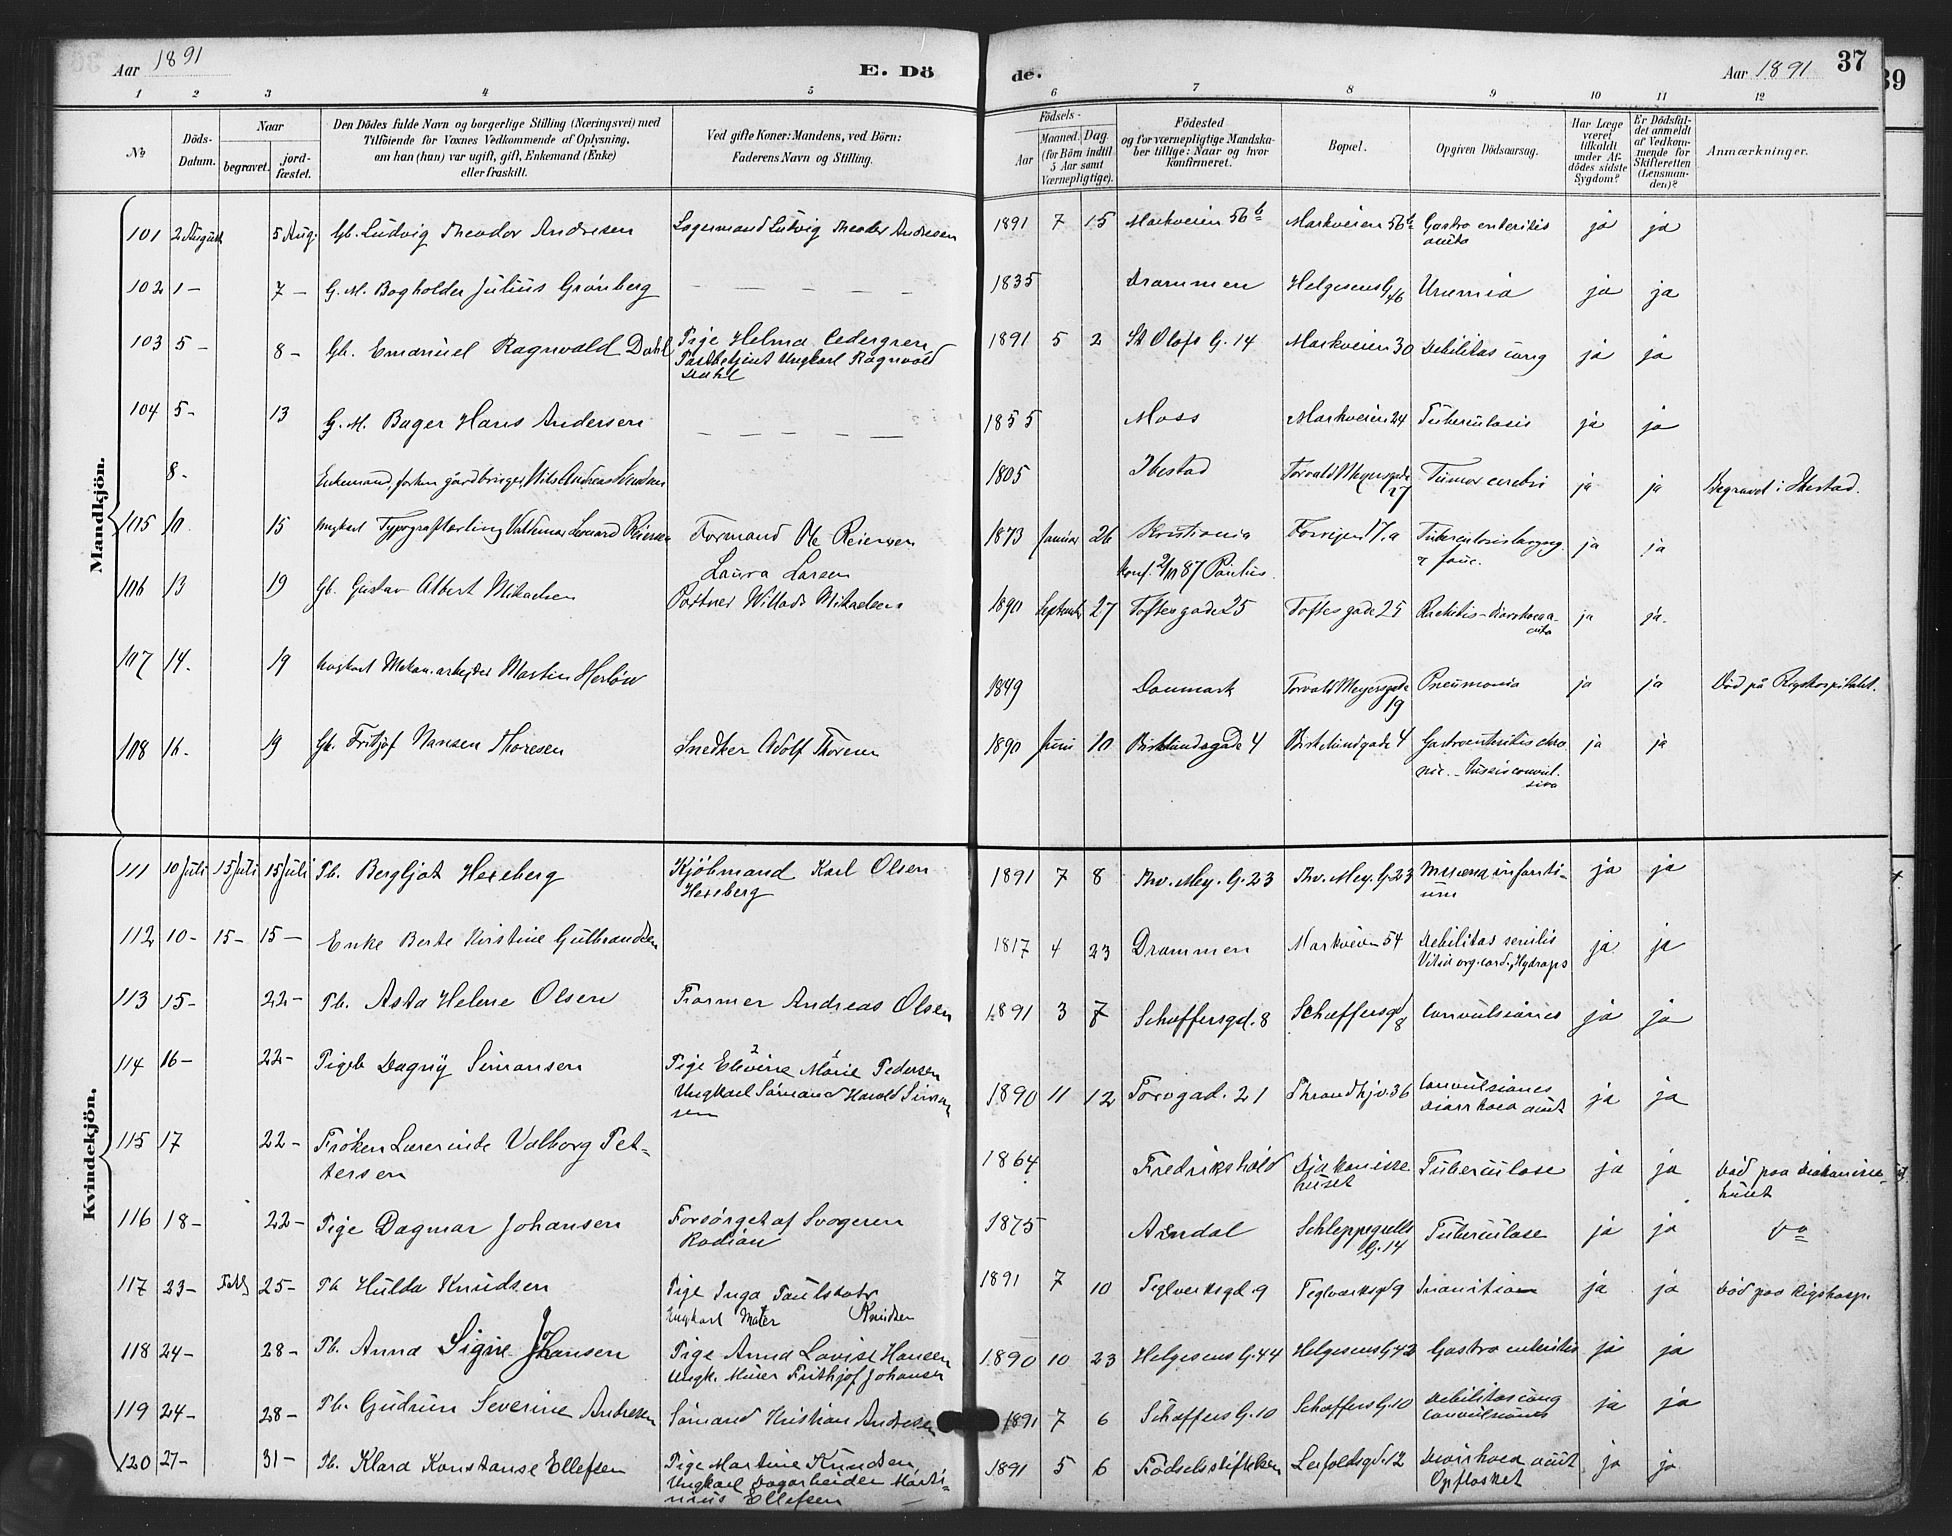 Aar 1891
E. Dö
de.
Aar 1891
37
39
1 2 3 4 5 6 7 8 9 10 11 12
№
Döds-
Datum.
Naar
begravet.
jord-
fæstet.
Den Dödes fulde Navn og borgerlige Stilling (Næringsvei) med
Tilföiende for Voxnes Vedkommende af Oplysning,
om han (hun) var ugift, gift, Enkemand (Enke)
eller fraskilt.
Ved gifte Koner: Mandens, ved Börn:
Faderens Navn og Stilling.
Födsels-
Aar
Maaned. Dag
(for Börn indtil
5 Aar samt
Værnepligtige).
Födested
og for værnepligtige Mandska-
ber tillige: Naar og hvor
konfirmeret.
Bopæl.
Opgiven Dödsaarsag.
Har Læge
været
tilkaldt
under Af-
dödes sidste
Sygdom?
Er Dödsfal-
det anmeldt
af Vedkom-
mende for
Skifteretten
(Lensman-
den)?
Anmærkninger.
Mandkjön.
101 2 August 5 Aug. Gb. Ludvig Theodor Andresen Lagermand Ludvig Theodor Andresen 1891 7 15 Markveien 56b Markveien 56b Gastro enteritis
acuta ja ja
102 1 – 7 – G. M. Bogholder Julius Grönberg — — — — — 1835 Drammen Helgesens G. 46 Uræmia ja ja
103 5 – 8 – Gb. Emanuel Ragnvald Dahl Pige Helma Cedergren
Ungkarl Ragnvald
Dahl 1891 5 2 St Olafs G. 14 Markveien 30 Debilitas cong ja ja
104 5 – 13 G. M. Bager Hans Andersen — — — — 1855 Moss Markveien 24 Tuberculosis ja ja
8 – Enkemand, forhen gårdbruger, Nils Andreas 1805 Ibestad Torvald Meyersgade
27 Tumor cerebri ja ja Begravet i Ibestad.
105 10. 15 Ungkarl Typograflærling Valdemar Leonard Reiersen Formand Ole Reiersen 1873 Januar 26 Kristiania
konf. 2/10 87 Paulus. 17. a ja ja
106 13 19 Gb. Gustav Albert Mikaelsen Laura Larsen
Willads Mikaelsen 1890 September 27 Toftesgade 25 Toftesgade 25 Rachitis – Diarrhoea a-
cuta ja ja.
107 14. 19 Ungkarl Mekan. arbejder Martin Herlöw 1849 Danmark Torvald Meyersgade
19 Pneumonia ja ja Död på Rigshospitalet.
108 16. 19 Gb. Fritjof Nansen Thoresen Snedker Adolf Thoresen 1890 Juni 10 Birkelundsgade 4 Birkelundgade 4 Gastroenteritis chro
nic. – Tussis convul-
siva ja ja
Kvindekjön.
111 10 Juli 15 Juli 15 Juli Pb. Bergljot Hexeberg Kjöbmand Karl Olsen
Hexeberg 1891 7 8 Thv. Mey. G. 23 Thv. Mey. G. 23 infanti-
um ja ja
112 10 – 15 – 15 – Enke Berte Kristine Gulbrandsen 1817 4 23 Drammen Markveien 54 Debilitas senilis
Vitium org. cord., Hydrops ja ja
113 15 – 22 – Pb. Asta Helene Olsen Former Andreas Olsen 1891 3 7 Schæffersgd. 8 Schæffersgd
8 Convulsiones ja ja
114 16 – 22 – Pigeb Dagny Simonsen Pige Elevine Marie Pedersen
Ungkarl Sömand Harald Simon
sen 1890 11 12 Torvgad. 21 Throndhjv. 36 Convulsiones
Diarrhoea acut ja ja
115 17 22 – Fröken Lærerinde Valborg Pet-
tersen 1864 Fredrikshald Diakonisse
huset Tuberculose ja ja Död paa Diakonisse
huset
116 18 – 22 – Pige Dagmar Johansen Forsörget af Svogeren
Rodian 1875 Arendal Schleppegrells
G. 14 Tuberculose ja ja do
117 23 – 25 – Pb Hulda Knudsen Pige Inga
Ungkarl Maler Knudsen 1891 7 10 Teglverksgd. 9 Teglværksgd 9 Inanition ja ja Död paa Rigshosp.
118 24 – 28 – Pb. Anna Signe Johansen Pige Anna Lovise Hansen
Ungk. Murer Frithjof Johansen 1890 10 23 Helgesens G. 44 Helgesens G. 42 Gastro enteritis ja ja
119 24 – 28 – Pb. Gudrun Severine Andresen Sömand Kristian Andresen 1891 7 6 Schæffers G. 10 Schæffers G. 10 Debilitas cong
Convulsiones ja ja
120 27 – 31 – Pb. Klara Konstanse Ellefsen Pige Martine Knudsen
Ungkarl Dagarbeider Marti-
nius Ellefsen 1891 5 6 Födselsstiftelsen 12 Diarrhoea acut
Opflasket ja ja